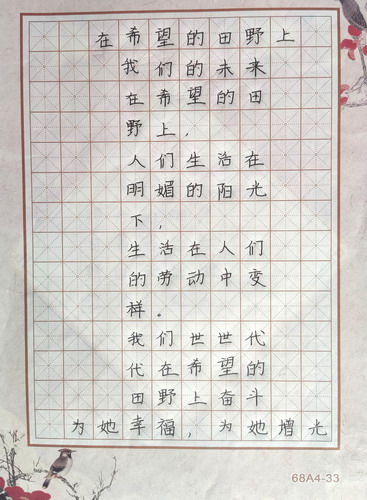 在希望的田野上
我们的未来
在希望的田
野上，
人们生活在
明媚的阳光
下，
生活在人们
的劳动中变
样。
我们世世代
代在希望的
田野上奋斗
为她幸福，为她增光
68A4-33